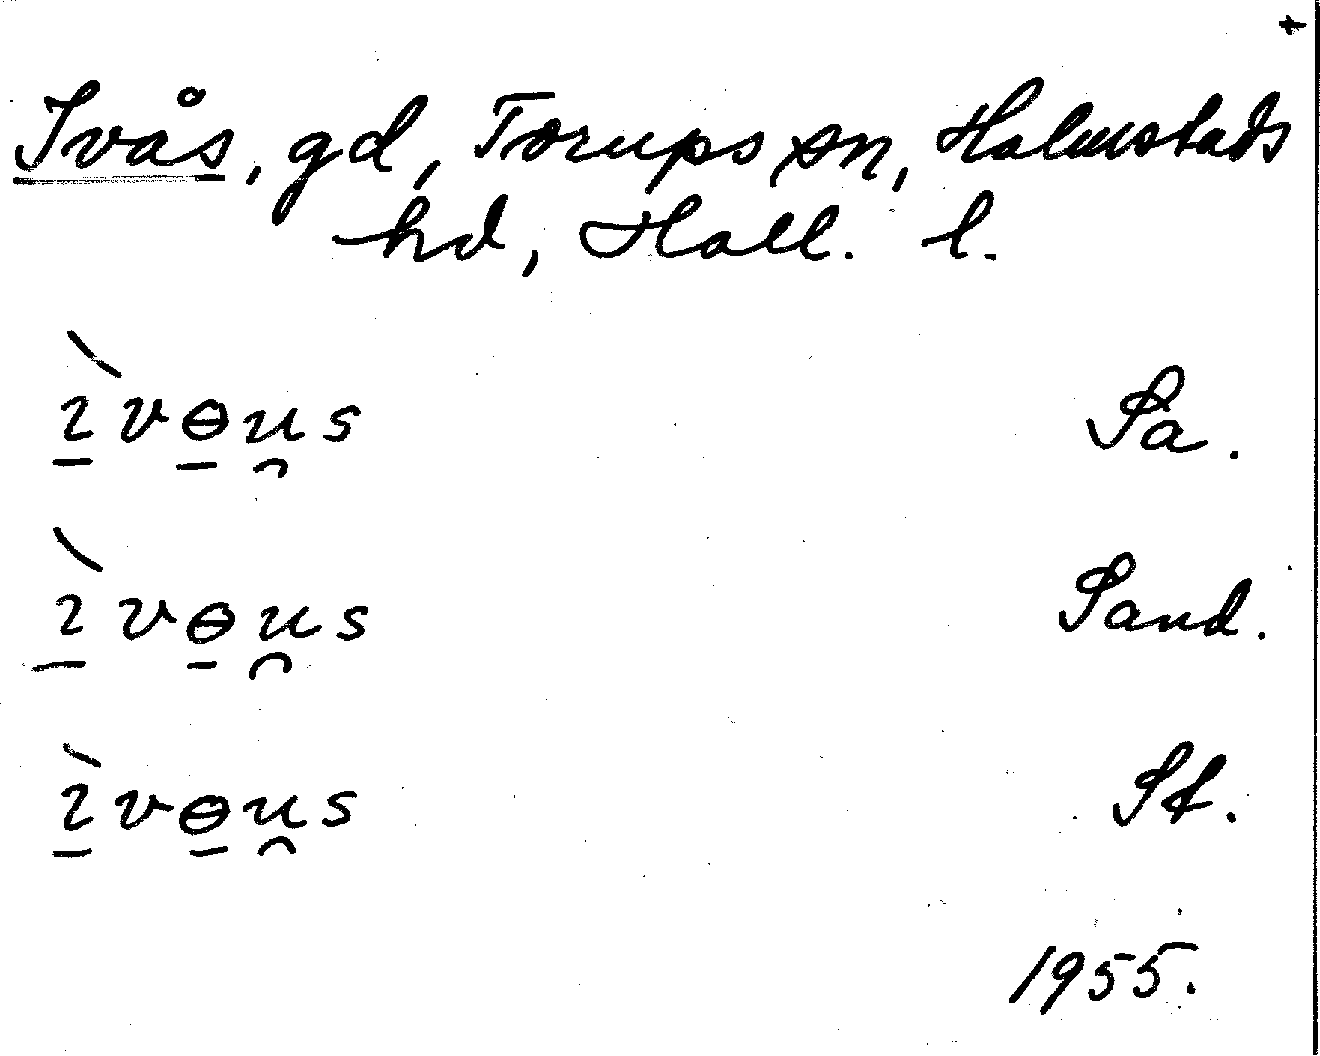 +
Ivås, gd, Torups sn, Halmstads
hd, Hall. l.
ı̀vɵu̯s Sa.
ı̀vɵu̯s Sand.
ı̀vɵu̯s St.
1955.